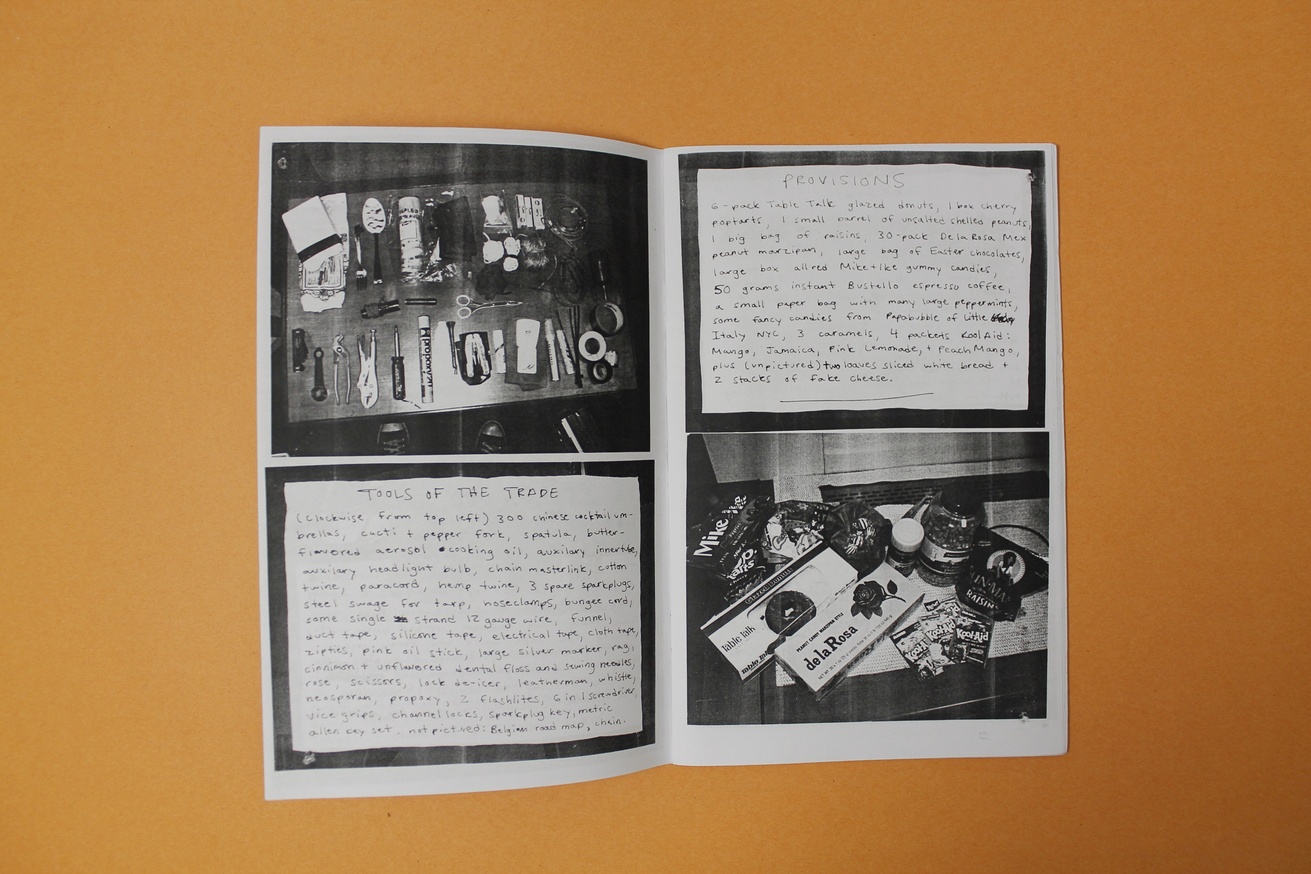 TOOLS OF THE TRADE
(clockwise from top left) 300 chinese cocktail um-
brellas, cacti + pepper fork, spatula, butter-
flavored aerosol cooking oil, auxilary innertube,
auxilary headlight bulb, chain masterlink, cotton
twine, paracord, hemp twine, 3 spare sparkplugs,
steel swage for tarp, hoseclamps, bungee cord,
some single strand 12 gauge wire, funnel,
duct tape, silicone tape, electrical tape, cloth tape,
zipties, pink oil stick, large silver marker, rag,
cinnimon + unflavored dental floss and sewing needles,
rose, scissors, lock de-icer, leatherman, whistle,
neosporan, propoxy, 2 flashlites, 6 in 1 screwdriver
vice grips, channel locks, sparkplug key, metric
allen key set. not pictured: Belgian road map, chain.
propoxy
PROVISIONS
6-pack Table Talk glazed donuts, 1 box cherry
poptarts, 1 small barrel of unsalted shelled peanuts,
1 big bag of raisins, 30-pack De la Rosa Mex
peanut marzipan, large bag of Easter chocolates,
large box all red Mike+Ike gummy candies,
50 grams instant Bustello espresso coffee,
a small paper bag with many large peppermints,
some fancy candies from Papabubble of Little
Italy NYC, 3 caramels, 4 packets Kool Aid:
Mango, Jamaica, Pink Lemonade, + Peach Mango,
plus (unpictured) two loaves sliced white bread +
2 stacks of fake cheese.
Mike
Table Talk
Table Talk
de la Rosa
PEANUT CANDY MARZIPAN STYLE
RAISINS
Kool-Aid
Kool-Aid